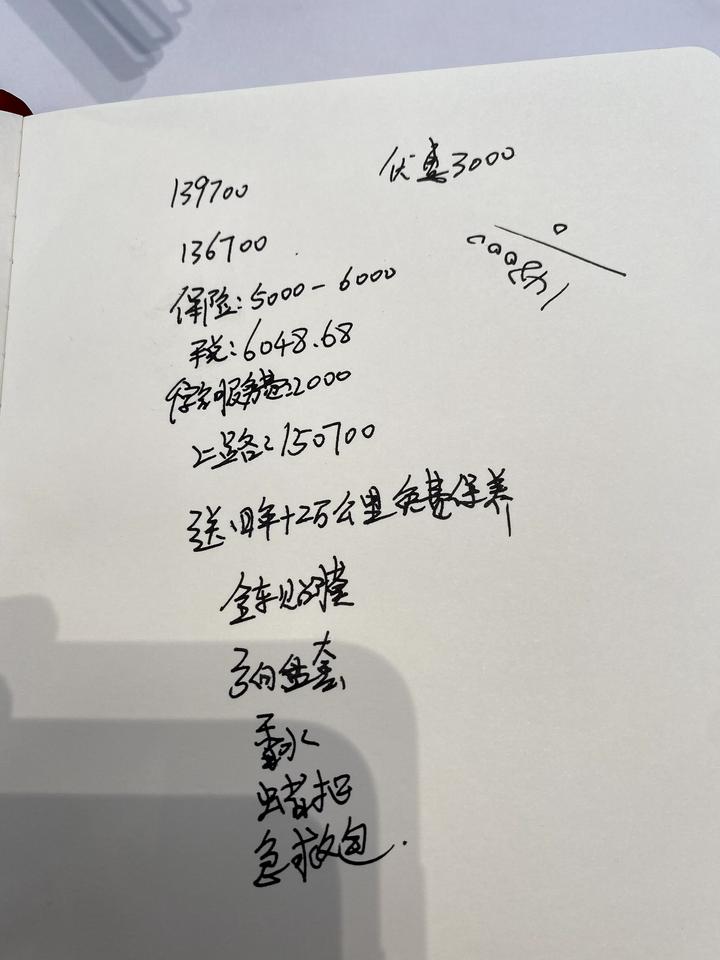 139700
优惠3000
136700
保险:5000-6000
税:6048.68
服务费:2000
上路:150700
送:四年十二万公里免费保养
全车贴膜
方向盘套
香水
急救包.